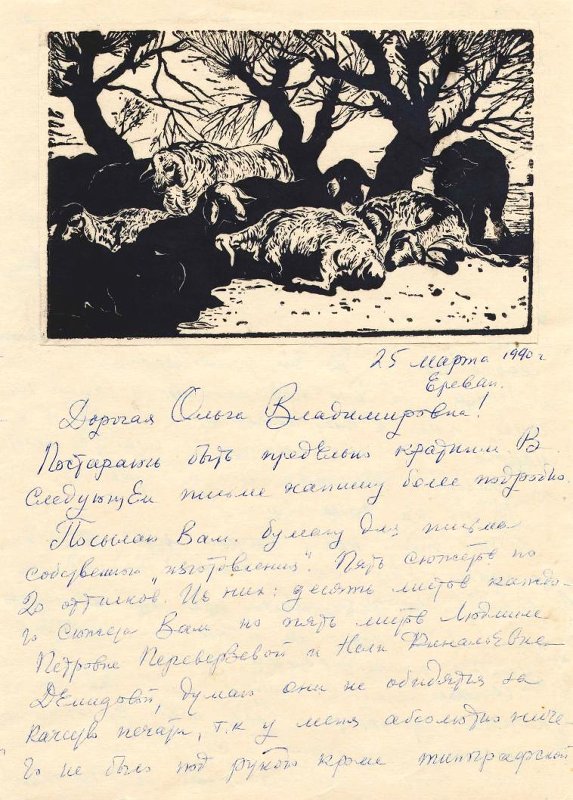 25 марта 1990 г
Ереван.
Дорогая Ольга Владимировна!
Постараюсь быть предельно кратким. В
следующем письме напишу более подробно.
Посылаю Вам бумагу для письма
собственного "изготовления". Пять сюжетов по
20 оттисков. Из них: десять листов каждо-
го сюжета Вам но пять листов Людмиле
Петровне Переверзевой и Нелли
Демидовой, думаю они не обидятся за
качество печати, т.к у меня абсолютно ниче-
го не было под рукой кроме типографской